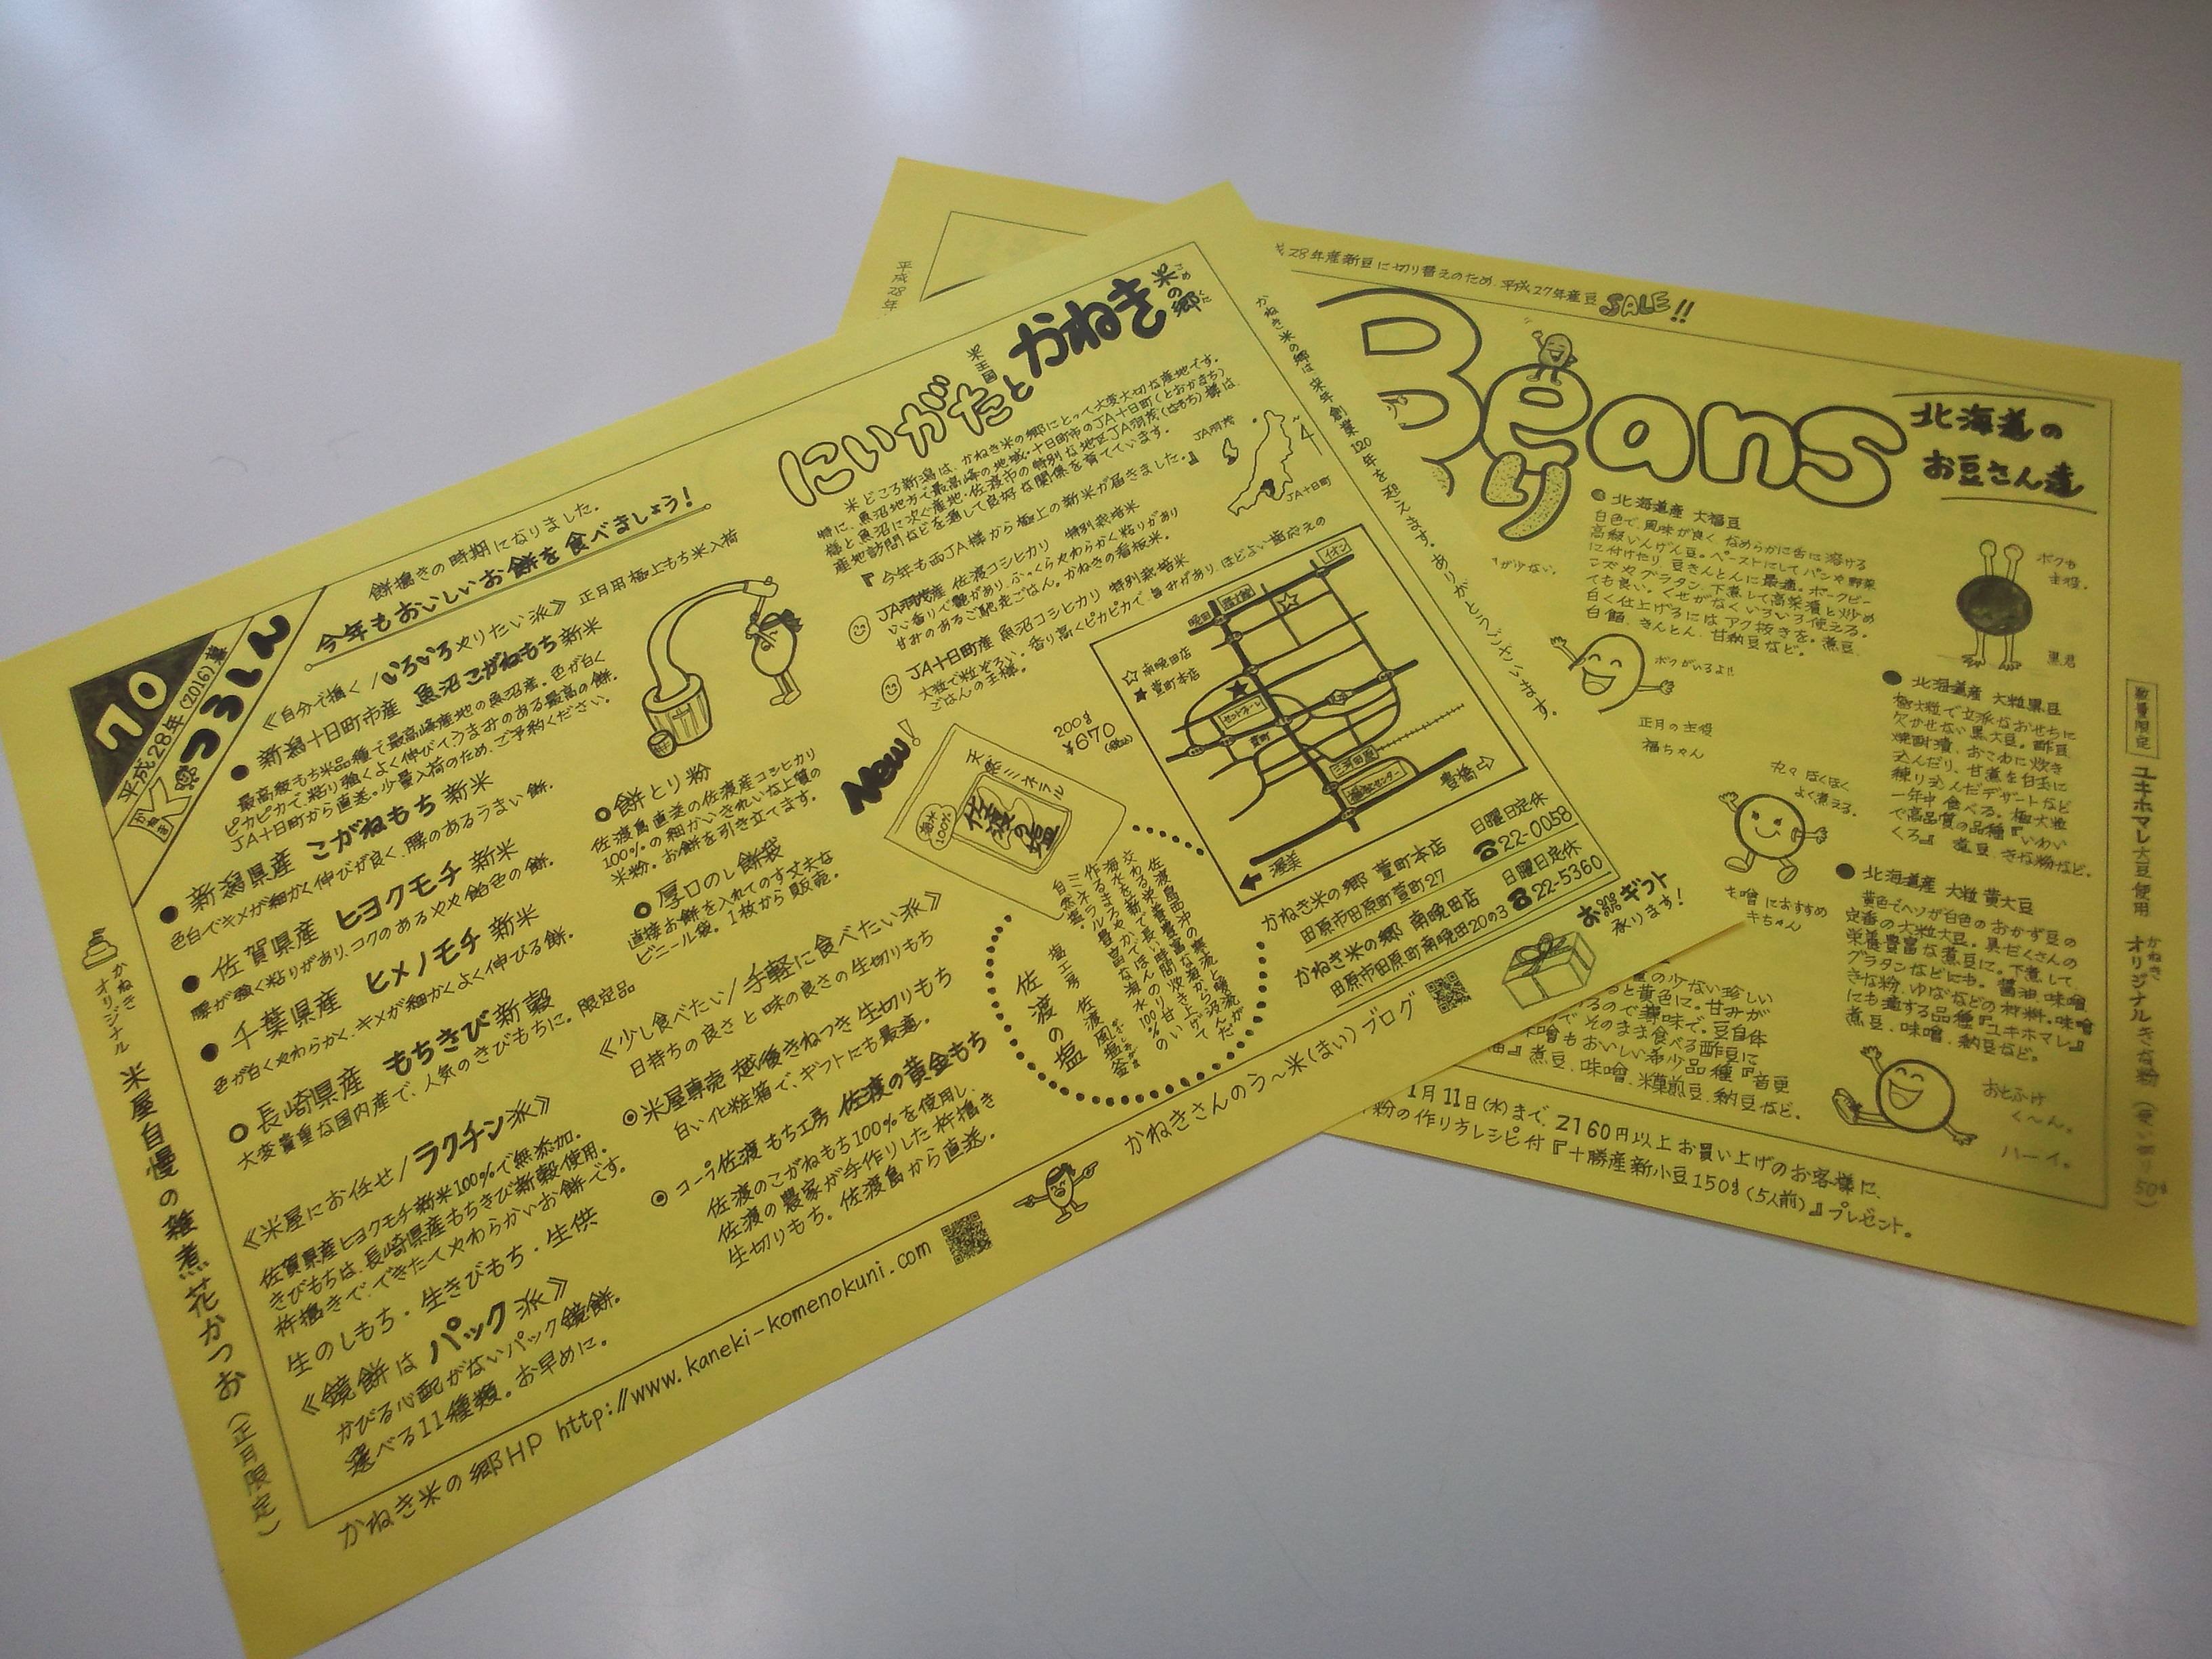 70
平成28年(2016)
かねき
つうしん
餅搗きの時期になりました。
今年もおいしいお餅を食べましょう!
《自分で搗く/いろいろやりたい派》 正月用極上もち米入荷
● 新潟十日町市産 魚沼こがねもち 新米
最高級もち米品種で最高峰産地の魚沼産。色が白く
ピカピカで、粘り強くよく伸びてうまみのある最高の餅。
JA十日町から直送。少量入荷のため、ご予約ください。
● 新潟県産 こがねもち 新米
色白でキメが細かく伸びが良く、腰のあるうまい餅。
● 佐賀県産 ヒヨクモチ 新米
腰が強く粘りがあり、コクのあるやや飴色の餅。
● 千葉県産 ヒメノモチ 新米
色が白くやわらかく、キメが細かくよく伸びる餅。
○ 長崎県産 もちきび 新穀
大変貴重な国内産で、人気のきびもちに。限定品
《米屋にお任せ/ラクチン派》
佐賀県産ヒヨクモチ新米100%で無添加。
きびもちは、長崎県産もちきび新穀使用。
杵搗きで、できたてやわらかいお餅です。
生のしもち・生きびもち・生供
《鏡餅は パック派》
かびる心配がないパック鏡餅。
選べる11種類。お早めに。
○ 餅とり粉
佐渡島直送の佐渡産コシヒカリ
100%の細かいきれいな上質の
米粉。お餅を引き立てます。
○ 厚口のし餅袋
直接お餅を入れてのす丈夫な
ビニール袋。1枚から販売。
《少し食べたい/手軽に食べたい派》
日持ちの良さと味の良さの生切りもち
◎ 米屋専売 越後きねつき生切りもち
白い化粧箱で、ギフトにも最適。
◎ コープ佐渡 もち工房 佐渡の黄金もち
佐渡のこがねもち100%を使用し、
佐渡の農家が手作りした杵搗き
生切りもち。佐渡島から直送。
かねき
オリジナル
米屋自慢の雑煮花かつお(正月限定)
かねき米の郷HP http://www.kaneki-komenokuni.com
かねきさんのう〜米(まい)ブログ
米王国
にいがたと かねき 米の郷
こめ くに
米どころ新潟は、かねき米の郷にとって大変大切な産地です。
特に、魚沼地方で最高峰の地域・十日町市のJA十日町(とおかまち)
様と魚沼に次ぐ産地・佐渡市の特別な地区JA羽茂(はもち)様は、
産地訪問などを通して良好な関係を育てています。
『今年も両JA様から極上の新米が届きました。』
JA羽茂産 佐渡コシヒカリ 特別栽培米
いい香りで艶があり、ふっくらやわらかく粘りがあり
甘みのあるご馳走ごはん。かねきの看板米。
JA十日町産 魚沼コシヒカリ 特別栽培米
大粒で粒ぞろい、香り高くピカピカで旨みがあり、ほどよい歯応えの
ごはんの王様。
JA羽茂
JA十日町
New!
200g
¥670
天然ミネラル
海水100%
佐渡の塩
塩工房 佐渡風塩釜
佐渡の塩
イオン
晩田
☆ 南晩田店
★ 萱町本店
セントファーレ
萱町
三河田原
福祉センター
渥美
豊橋
かねき米の郷 萱町本店 日曜日定休
田原市田原町萱町27 ☎22-0058
かねき米の郷 南晩田店 日曜日定休
田原市田原町南晩田20の3 ☎22-5360
お米ギフト
承ります!
かねき米の郷は来年創業120年を迎えます。ありがとうございます。
平成28年
28年産新豆に切り替えのため、平成27年産豆 SALE!!
Beans
北海道の
お豆さん達
● 北海道産 大福豆
白色で、風味が良く なめらかに舌に溶ける
高級いんげん豆。ペーストにしてパンや野菜
に付けたり、豆きんとんに最適。ポークビー
ンズやグラタン、下煮して高菜漬と炒め
ても良い。くせがなくいろいろ使える。
白く仕上げるにはアク抜きを。煮豆、
白餡、きんとん、甘納豆など。
ボクがいるよ!!
正月の主役
福ちゃん
ボクも
主役。
黒君
● 北海道産 大粒黒豆
極大粒で立派なおせちに
欠かせない黒大豆。酢豆、
焼酎漬、おこわに炊き
込んだり、甘煮を白玉に
練り込んだデザートなど
一年中食べる。極大粒
で高品質の品種『いわい
くろ』 煮豆、きな粉など。
丸々 ほくほく
よく煮える。
味噌におすすめ
● 北海道産 大粒 黄大豆
黄色でヘソが白色のおかず豆の
定番の大粒大豆。具だくさんの
栄養豊富な煮豆に。下煮して
グラタンなどにも。醤油、味噌、
きな粉、ゆばなどの材料。味噌
にも適する品種『ユキホマレ』
煮豆、味噌、納豆など。
の少ない珍しい
ると黄色に。甘みが
るので薄味で。豆自体
で そのまま食べる酢豆に
味噌もおいしい希少品種『音更
煮豆、味噌、米菓煎豆、納豆など。
おとふけ
く〜ん。
ハーイ。
数量限定 ユキホマレ大豆使用 かねきオリジナルきな粉
1月11日(水)まで、2160円以上お買い上げのお客様に、
粉の作り方レシピ付『十勝産新小豆150g(5人前)』プレゼント。